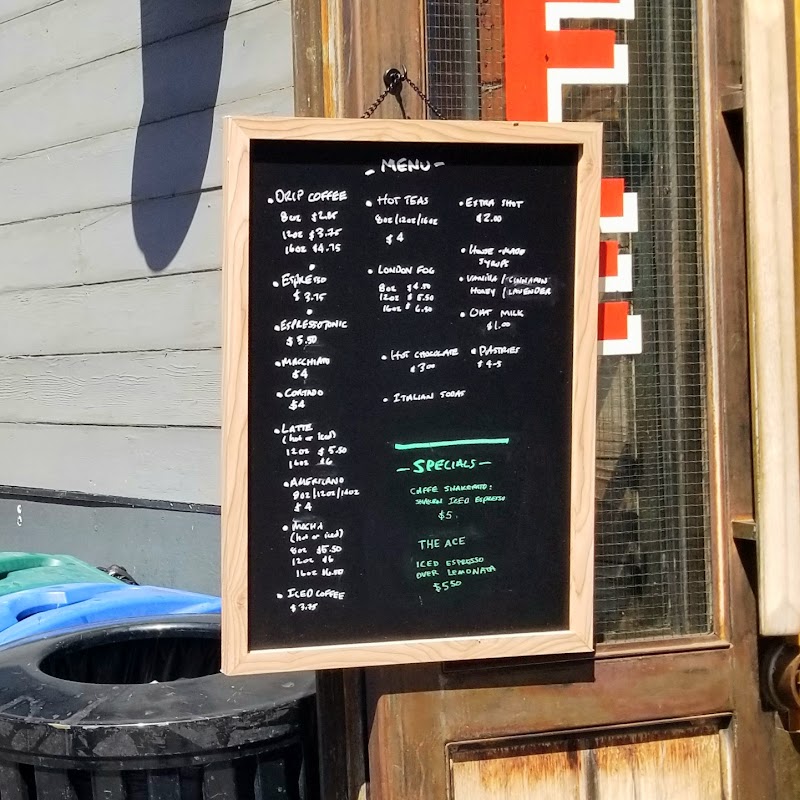 - MENU -
• DRIP COFFEE
8oz $2.85
12oz $3.75
16oz $4.75
• ESPRESSO
$3.75
• ESPRESSO TONIC
$5.50
• MACCHIATO
$4
• CORTADO
$4
• LATTE
(hot or iced)
12oz $5.50
16oz $6
• AMERICANO
8oz/12oz/16oz
$4
• MOCHA
(hot or iced)
8oz $5.50
12oz $6
16oz $6.50
• ICED COFFEE
$3.75
• HOT TEAS
8oz/12oz/16oz
$4
• LONDON FOG
8oz $4.50
12oz $5.50
16oz $6.50
• HOT CHOCOLATE
$3.00
• ITALIAN SODAS
• EXTRA SHOT
$2.00
• HOUSE-MADE
SYRUPS
• VANILLA / CINNAMON
HONEY / LAVENDER
• OAT MILK
$1.00
• PASTRIES
$4-5
- SPECIALS -
CAFFE SHAKERATO:
SHAKEN ICED ESPRESSO
$5
THE ACE
ICED ESPRESSO
OVER LEMONATA
$5.50
F